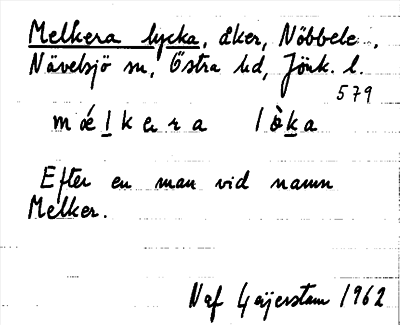 Melkera lycka, åker, Nöbbele,
Nävelsjö sn, Östra hd, Jönk. l.
579
mǽlkara lòka
Efter en man vid namn
Melker.
Naf Gäijerstam 1962